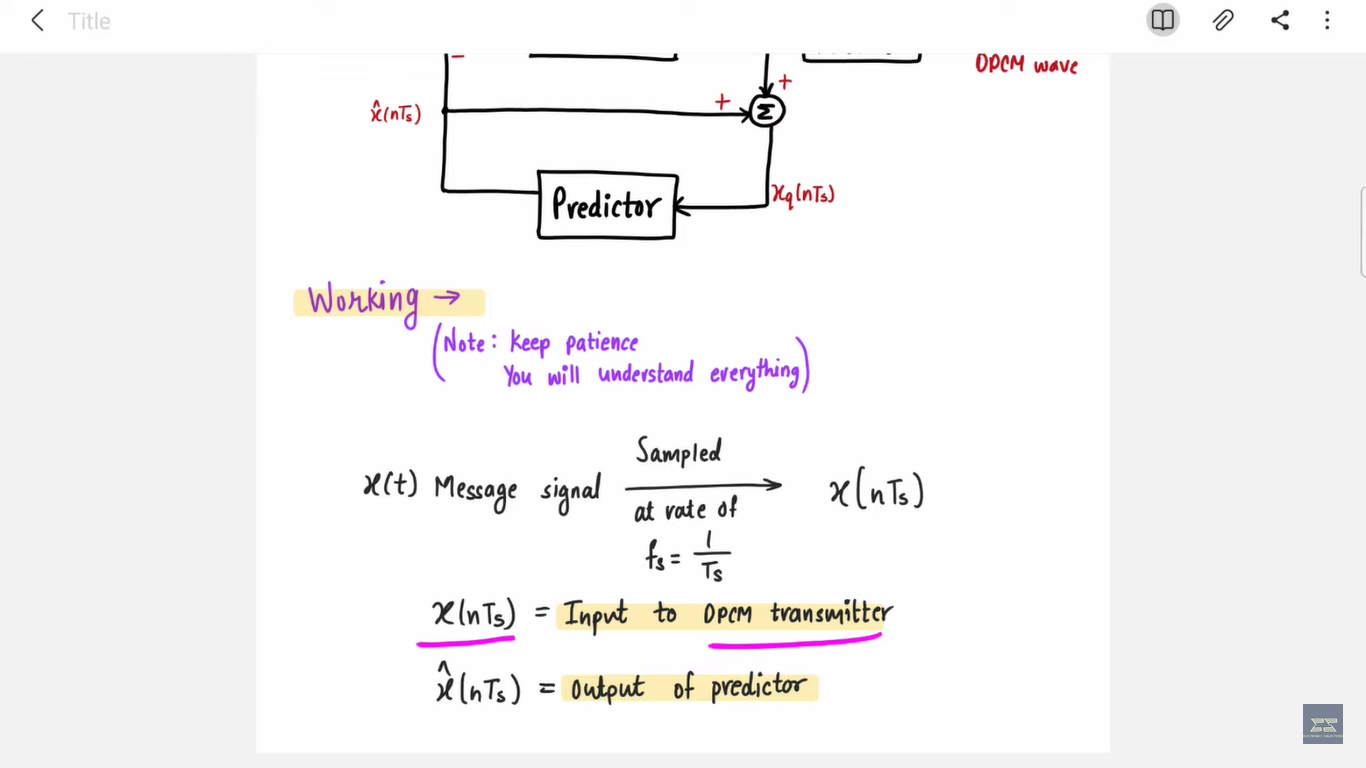 Title
DPCM wave
+
−
x̂(nTs)
+
Σ
Predictor
xq(nTs)
Working →
(Note: Keep patience
You will understand everything)
Sampled
x(t) Message signal → x(nTs)
at rate of
fs = 1/Ts
x(nTs) = Input to DPCM transmitter
x̂(nTs) = Output of predictor